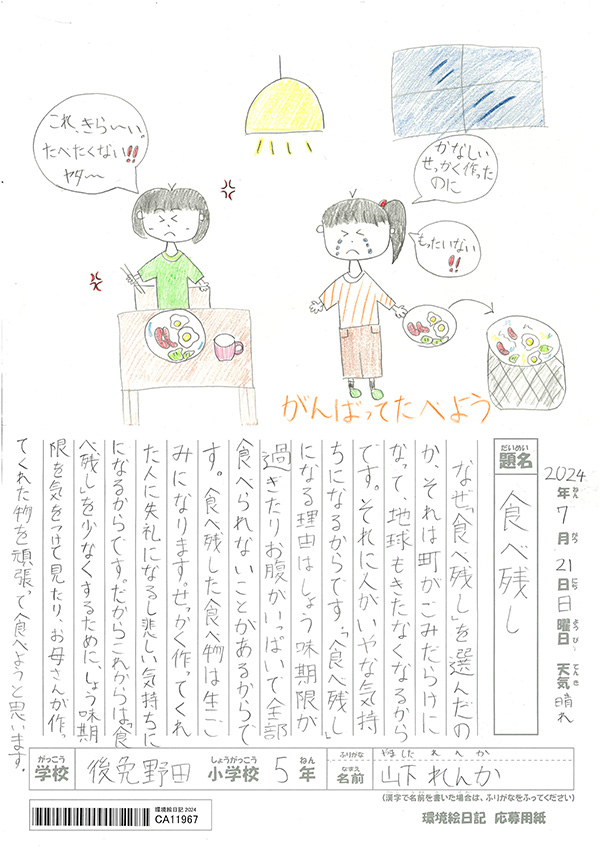 これ、きらーい。
たべたくない!!
ヤダ〜
かなしい
せっかく作った
のに
もったいない
!!
がんばってたべよう
2024年7月21日日曜日 天気 晴れ
ねん がつ にち ようび てんき
だいめい
題名
食べ残し
なぜ「食べ残し」を選んだの
か、それは町がごみだらけに
なって、地球もきたなくなるから
です。それに人がいやな気持
ちになるからです。「食べ残し」
になる理由はしょう味期限が
過ぎたりお腹がいっぱいで全部
食べられないことがあるからで
す。食べ残した食べ物は生ご
みになります。せっかく作ってくれ
た人に失礼になるし悲しい気持ちに
になるからです。だからこれからは「食
べ残し」を少なくするために、しょう味期
限を気をつけて見たり、お母さんが作っ
てくれた物を頑張って食べようと思います。
がっこう しょうがっこう ねん
学校 後免野田 小学校 5年
ふりがな やました れんか
なまえ
名前 山下 れんか
(漢字で名前を書いた場合は、ふりがなをふってください)
環境絵日記 2024
CA11967
環境絵日記 応募用紙